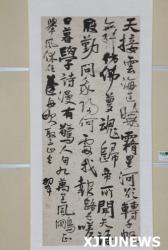 天接雲濤連曉霧星河欲轉千帆
舞仿佛夢魂歸帝所聞天語
殷勤問我歸何處我報路長嗟
日暮學詩漫有驚人句九萬里風鵬正
舉風休住蓬舟吹取三山去
XJTUNEWS